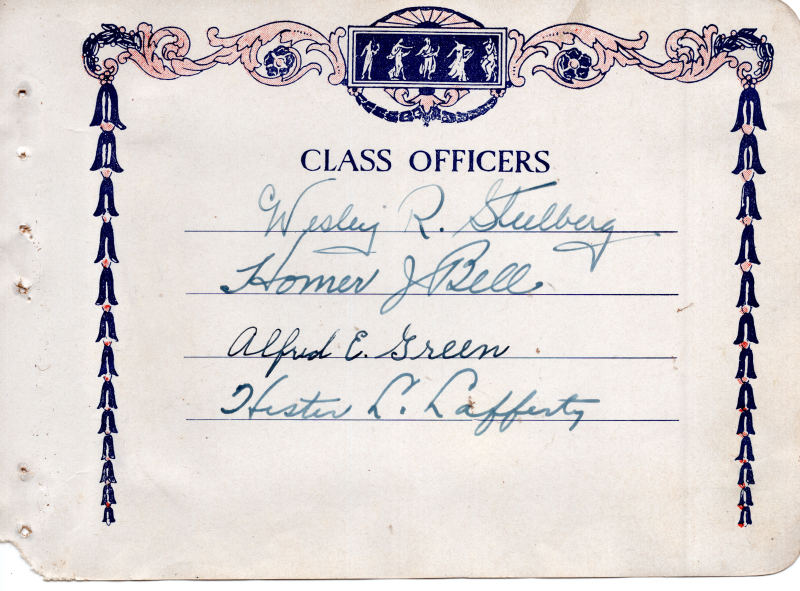 CLASS OFFICERS
Wesley R. Steelberg
Homer J Bell
Alfred E. Green
Hester L. Lafferty